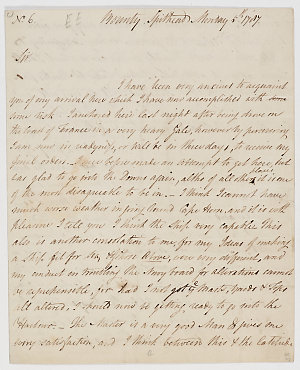 No 6.
Bounty Spithead Monday 5th 1787
Sir
I have been very anxious to acquaint
you of my arrival here which I have now accomplished with some
risk. I anchored here last night after being drove on
the coast of France in a very heavy gale, however by persevering
I am now in readyness, or will be in three days, to receive my
final orders.
was glad to get to the Downs again, altho of all places it is one
of the most disagreeable to be in. I think I cannot have
much worse weather in going round Cape Horn, and it is with
pleasure I tell you I think the Ship very capable. This
also is another consolation to me, for my Ideas of making
a Ship fit for Any of those Seas, were very different, and
my conduct in troubling the Navy board for alterations cannot
be reprehensible, for had I not got my Masts, Yards & Tops
all altered, I should now be getting ready to go into the
Harbour. - The Master is a very good Man & gives me
every satisfaction, and I think between this & the latitude